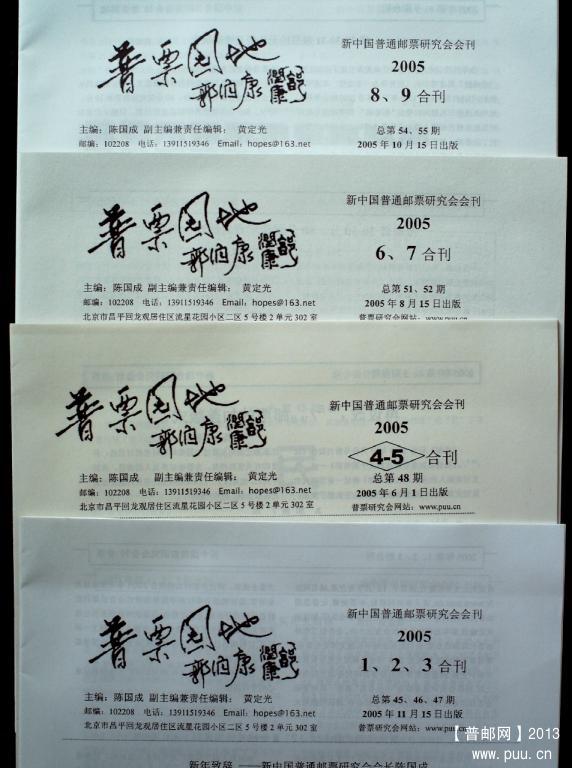 普票园地
郭润康
新中国普通邮票研究会会刊
2005
8、9 合刊
主编：陈国成 副主编兼责任编辑： 黄定光
总第 54、55 期
邮编：102208 电话：13911519346 Email：hopes@163.net
2005 年 10 月 15 日出版
普票园地
郭润康
新中国普通邮票研究会会刊
2005
6、7 合刊
主编：陈国成 副主编兼责任编辑： 黄定光
总第 51、52 期
邮编：102208 电话：13911519346 Email：hopes@163.net
2005 年 8 月 15 日出版
北京市昌平回龙观居住区流星花园小区二区 5 号楼 2 单元 302 室
普票研究会网站：www.puu.cn
普票园地
郭润康
新中国普通邮票研究会会刊
2005
4-5 合刊
主编：陈国成 副主编兼责任编辑：黄定光
总第 48 期
邮编：102208 电话：13911519346 Email：hopes@163.net
2005 年 6 月 1 日出版
北京市昌平回龙观居住区流星花园小区二区 5 号楼 2 单元 302 室
普票研究会网站：www.puu.cn
普票园地
郭润康
新中国普通邮票研究会会刊
2005
1、2、3 合刊
主编：陈国成 副主编兼责任编辑： 黄定光
总第 45、46、47 期
邮编：102208 电话：13911519346 Email：hopes@163.net
2005 年 11 月 15 日出版
北京市昌平回龙观居住区流星花园小区二区 5 号楼 2 单元 302 室
普票研究会网站：www.puu.cn
新年致辞 ——新中国普通邮票研究会会长陈国成
【普邮网】2013
www.puu.cn